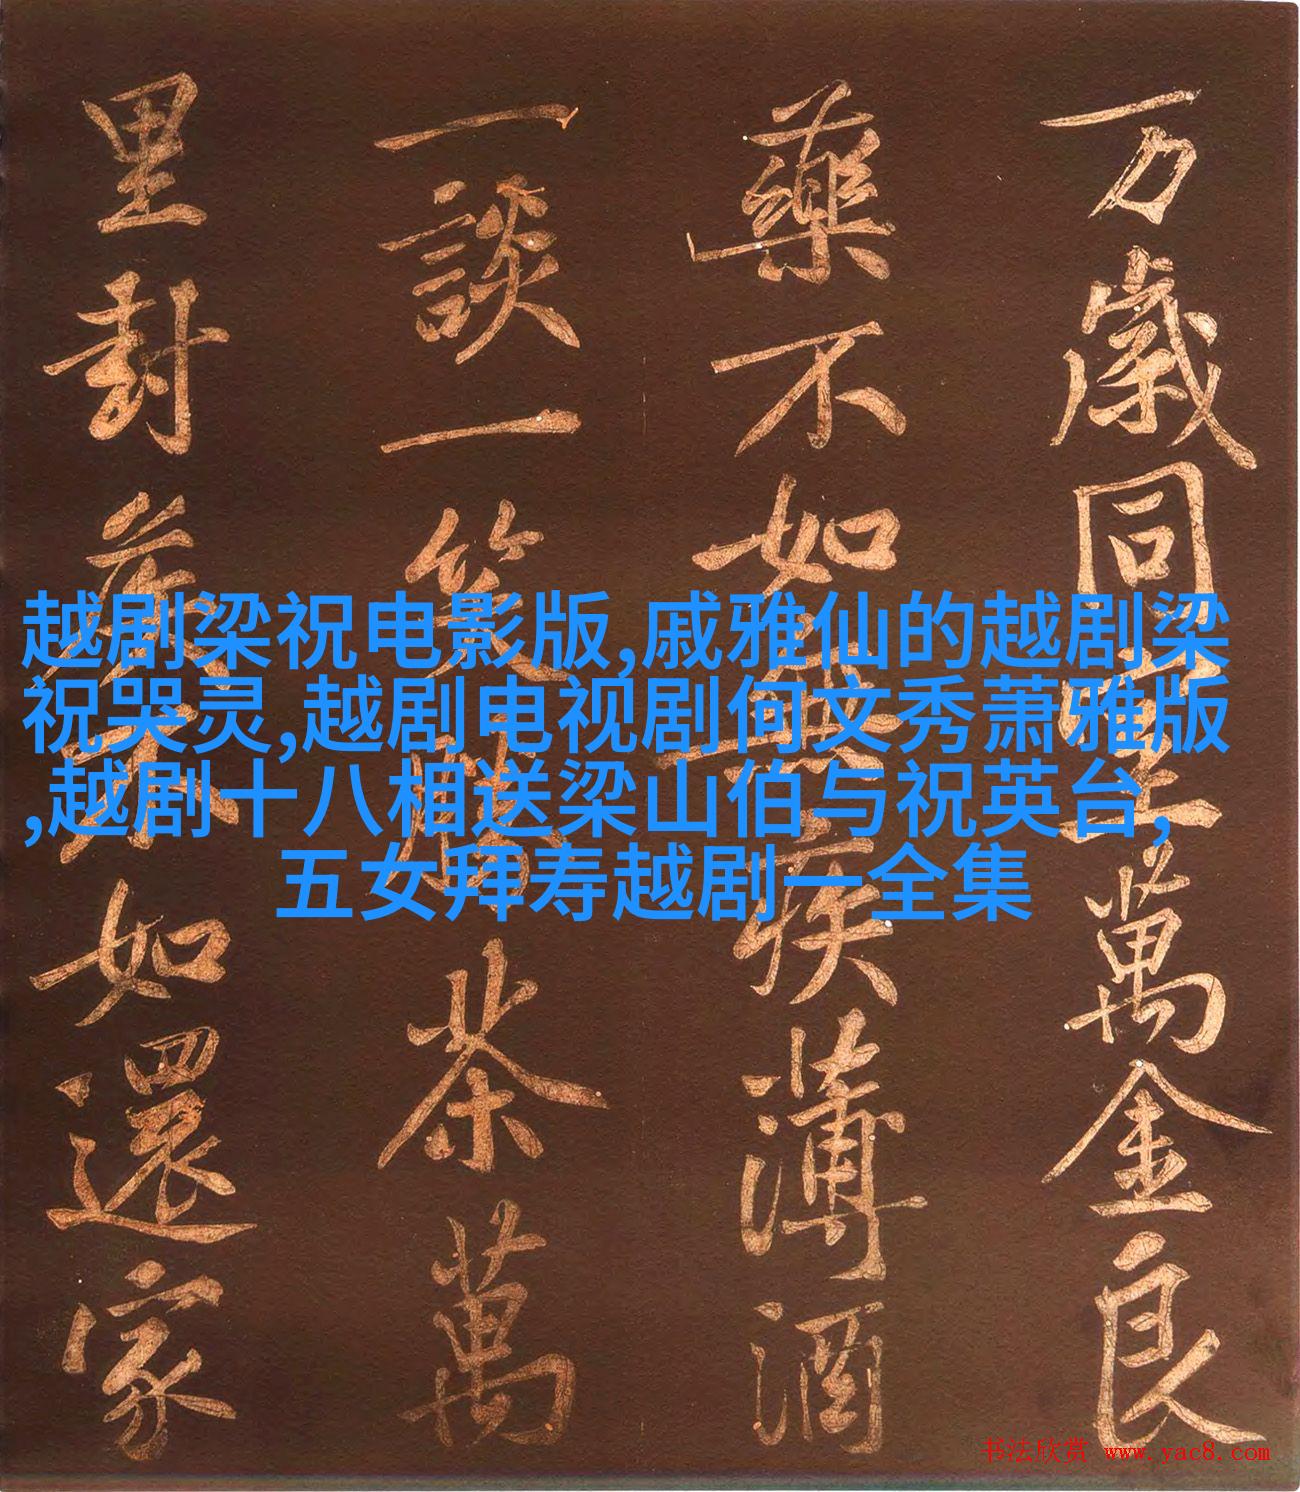 万歲同萬金良
藥不如無疾薄酒
一談一笑勝茶萬
里封矦不如還家
越剧梁祝电影版,戚雅仙的越剧梁
祝哭灵,越剧电视剧何文秀萧雅版
,越剧十八相送梁山伯与祝英台,
五女拜寿越剧一全集
书法欣赏 www.yac8.com